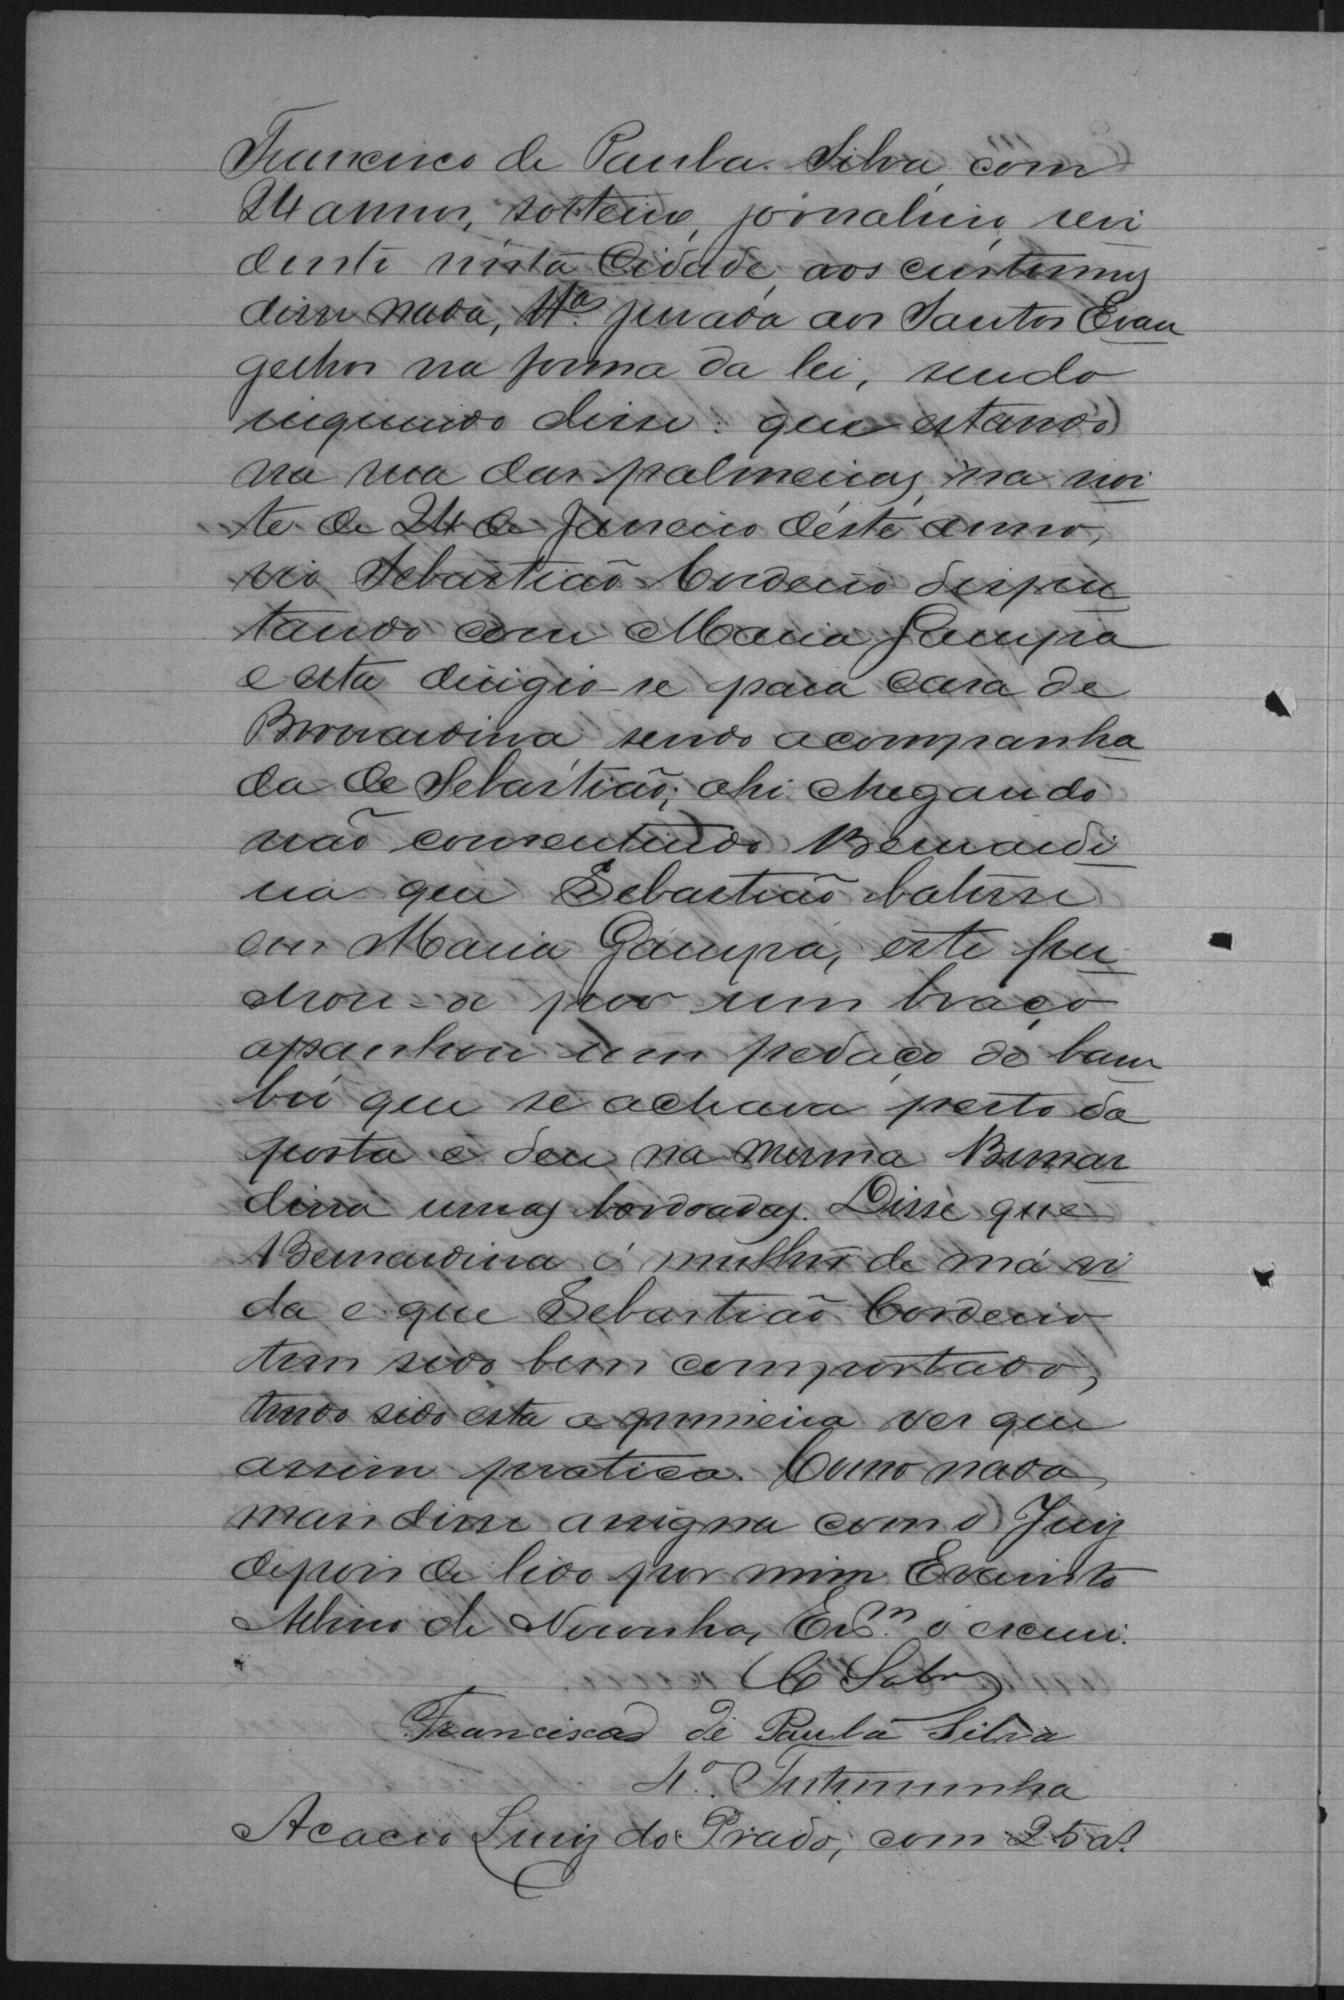 Francisco de Paula Silva, com
24 annos, solteiro, jornaleiro, resi
dente nesta Cidade, aos custumes
disse nada, Tª. jurada aos Santos Evan
gelhos na forma da lei, sendo
inquirido disse: que estando
na rua das palmeiras, na noi
te de 24 de Janeiro déste anno,
vio Sebastião Cordeiro despu
tando com Maria Gampa
e esta dirigio-se para casa de
Bernardina sendo acompanha
da de Sebastião; ahi chegando
não consentindo Bernardi
na que Sebastião batesse
em Maria Gampa, este pu
chou-a por um braço
apanhou um pedaço de bam
bú que se achava perto da
porta e deu na mesma Bernar
dina umas bordoadas. Disse que
Bernardina é mulher de má vi
da e que Sebastião Cordeiro
tem sido bem comportado,
tendo sido esta a primeira ves que
assim pratica. Como nada
mais disse assigna com o Juiz
depois de lido por mim Evaristo
Albino de Noronha, Esᵐ. o escrevi.
Francisco de Paula Silva
4ª. Testemunha
Acacio Luiz do Prado, com 25 aˢ.